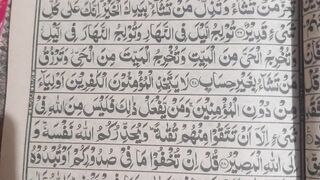 مَنْ تَشَآءُ وَتُذِلُّ مَنْ تَشَآءُ بِيَدِكَ الْخَيْرُ اِنَّكَ عَلٰى كُلِّ
شَىْءٍ قَدِيْرٌ تُوْلِجُ الَّيْلَ فِى النَّهَارِ وَتُوْلِجُ النَّهَارَ فِى الَّيْلِ
وَتُخْرِجُ الْحَىَّ مِنَ الْمَيِّتِ وَتُخْرِجُ الْمَيِّتَ مِنَ الْحَىِّ وَتَرْزُقُ
مَنْ تَشَآءُ بِغَيْرِ حِسَابٍ لَا يَتَّخِذِ الْمُؤْمِنُوْنَ الْكٰفِرِيْنَ اَوْلِيَآءَ
مِنْ دُوْنِ الْمُؤْمِنِيْنَ وَمَنْ يَّفْعَلْ ذٰلِكَ فَلَيْسَ مِنَ اللّٰهِ فِىْ
شَىْءٍ اِلَّآ اَنْ تَتَّقُوْا مِنْهُمْ تُقٰىةً وَيُحَذِّرُكُمُ اللّٰهُ نَفْسَهٗ وَ
اِلَى اللّٰهِ الْمَصِيْرُ قُلْ اِنْ تُخْفُوْا مَا فِىْ صُدُوْرِكُمْ اَوْ تُبْدُوْهُ